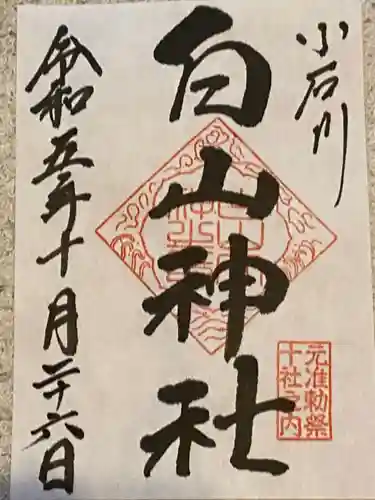 小石川
白山神社
令和五年十月二十六日
元准勅祭
十社之内